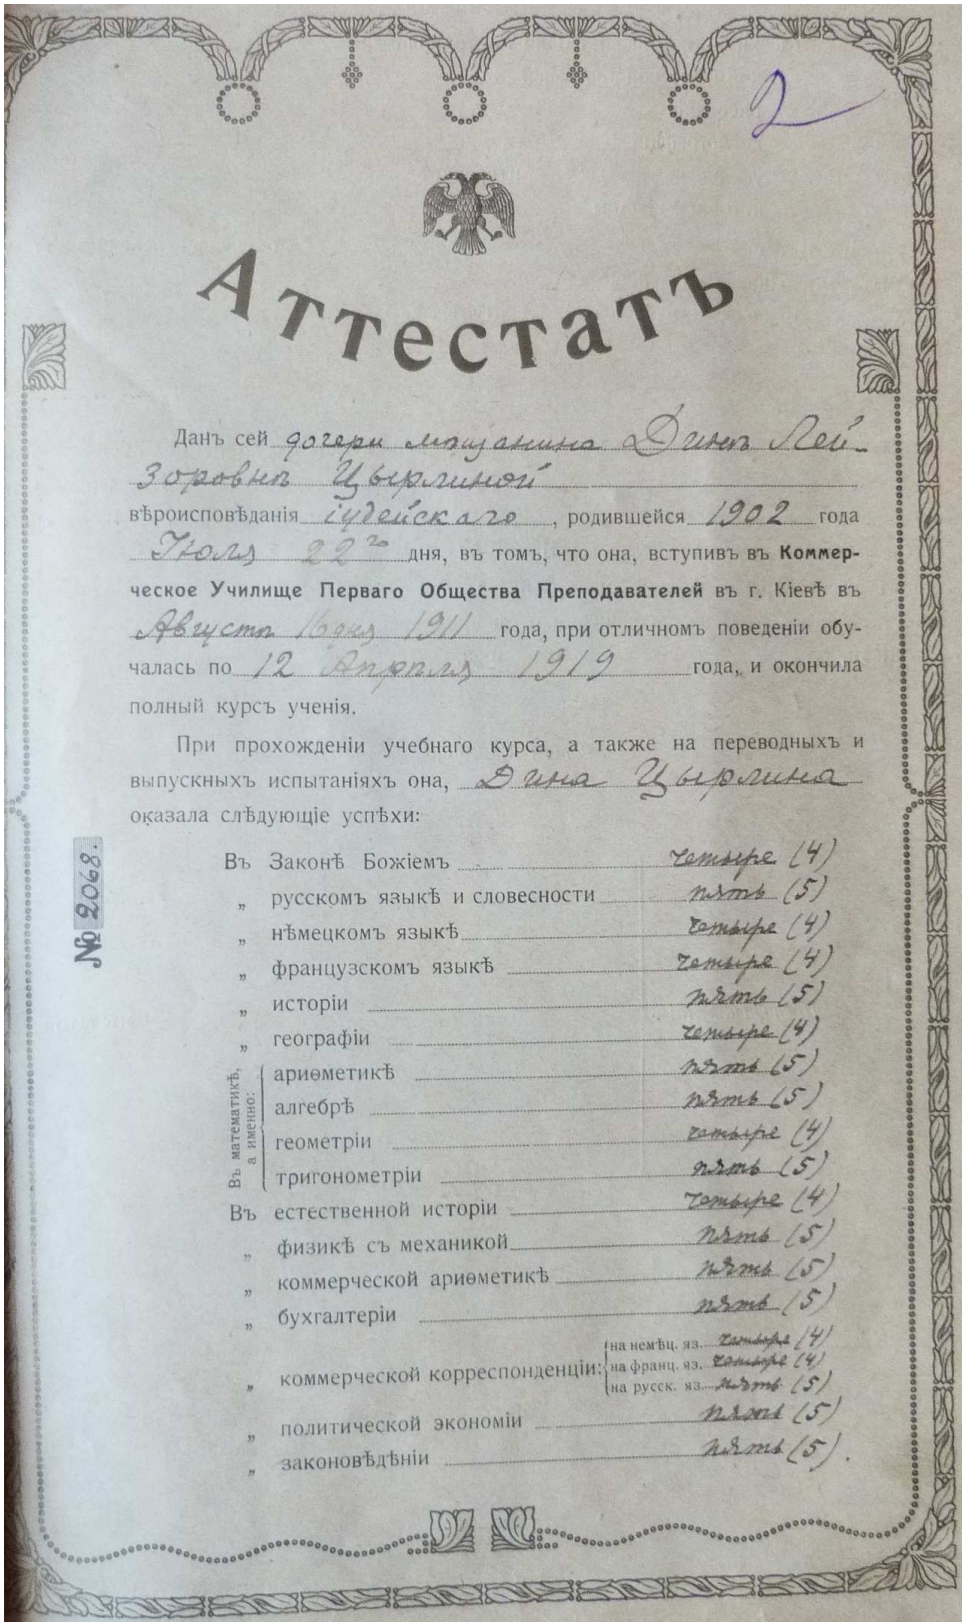 2
Аттестатъ
Данъ сей дочери мѣщанина Динѣ Лей-
зоровнѣ Цырлиной
вѣроисповѣданія іудейскаго, родившейся 1902 года
Іюля 22го дня, въ томъ, что она, вступив въ Коммер-
ческое Училище Перваго Общества Преподавателей въ г. Кіевѣ въ
Августѣ 16 дня 1911 года, при отличномъ поведеніи обу-
чалась по 12 Апрѣля 1919 года, и окончила
полный курсъ ученія.
При прохожденіи учебнаго курса, а также на переводныхъ и
выпускныхъ испытаніяхъ она, Дина Цырлина
оказала слѣдующіе успѣхи:
№ 2068.
Въ Законѣ Божіемъ четыре (4)
„ русскомъ языкѣ и словесности пять (5)
„ нѣмецкомъ языкѣ четыре (4)
„ французскомъ языкѣ четыре (4)
„ исторіи пять (5)
„ географіи четыре (4)
Въ математикѣ,
а именно:
ариѳметикѣ пять (5)
алгебрѣ пять (5)
геометріи четыре (4)
тригонометріи пять (5)
Въ естественной исторіи четыре (4)
„ физикѣ съ механикой пять (5)
„ коммерческой ариѳметикѣ пять (5)
„ бухгалтеріи пять (5)
„ коммерческой корреспонденціи:
на немѣц. яз. четыре (4)
на франц. яз. четыре (4)
на русск. яз. пять (5)
„ политической экономіи пять (5)
„ законовѣдѣніи пять (5).